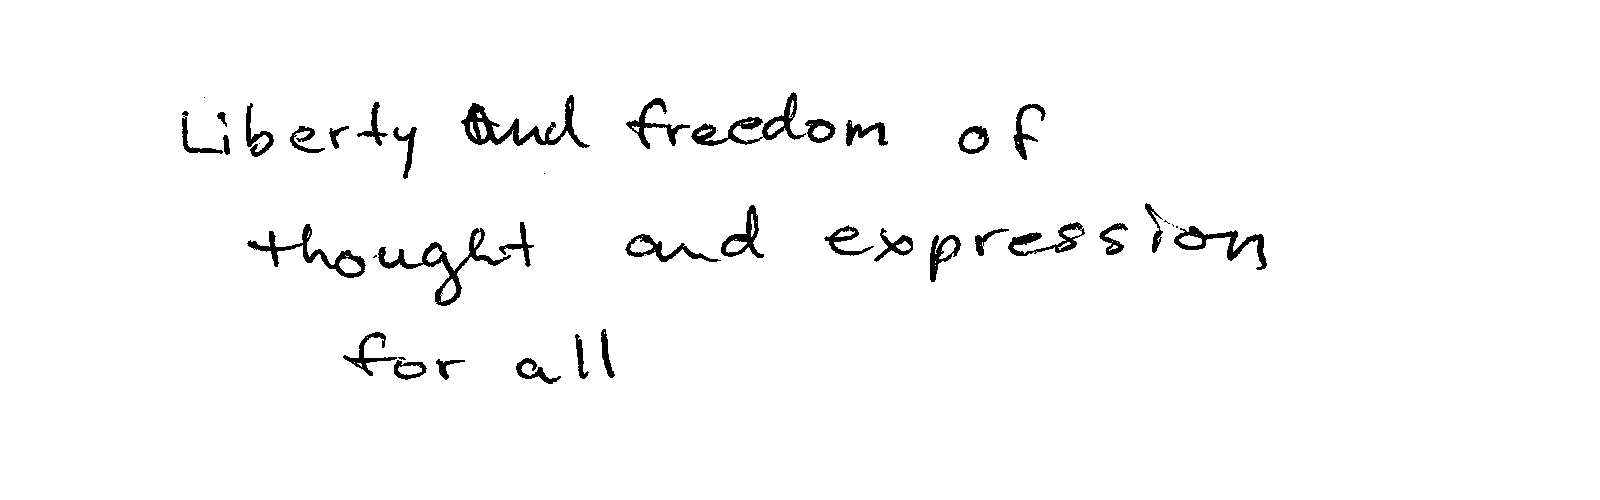 Liberty and freedom of
thought and expression
for all